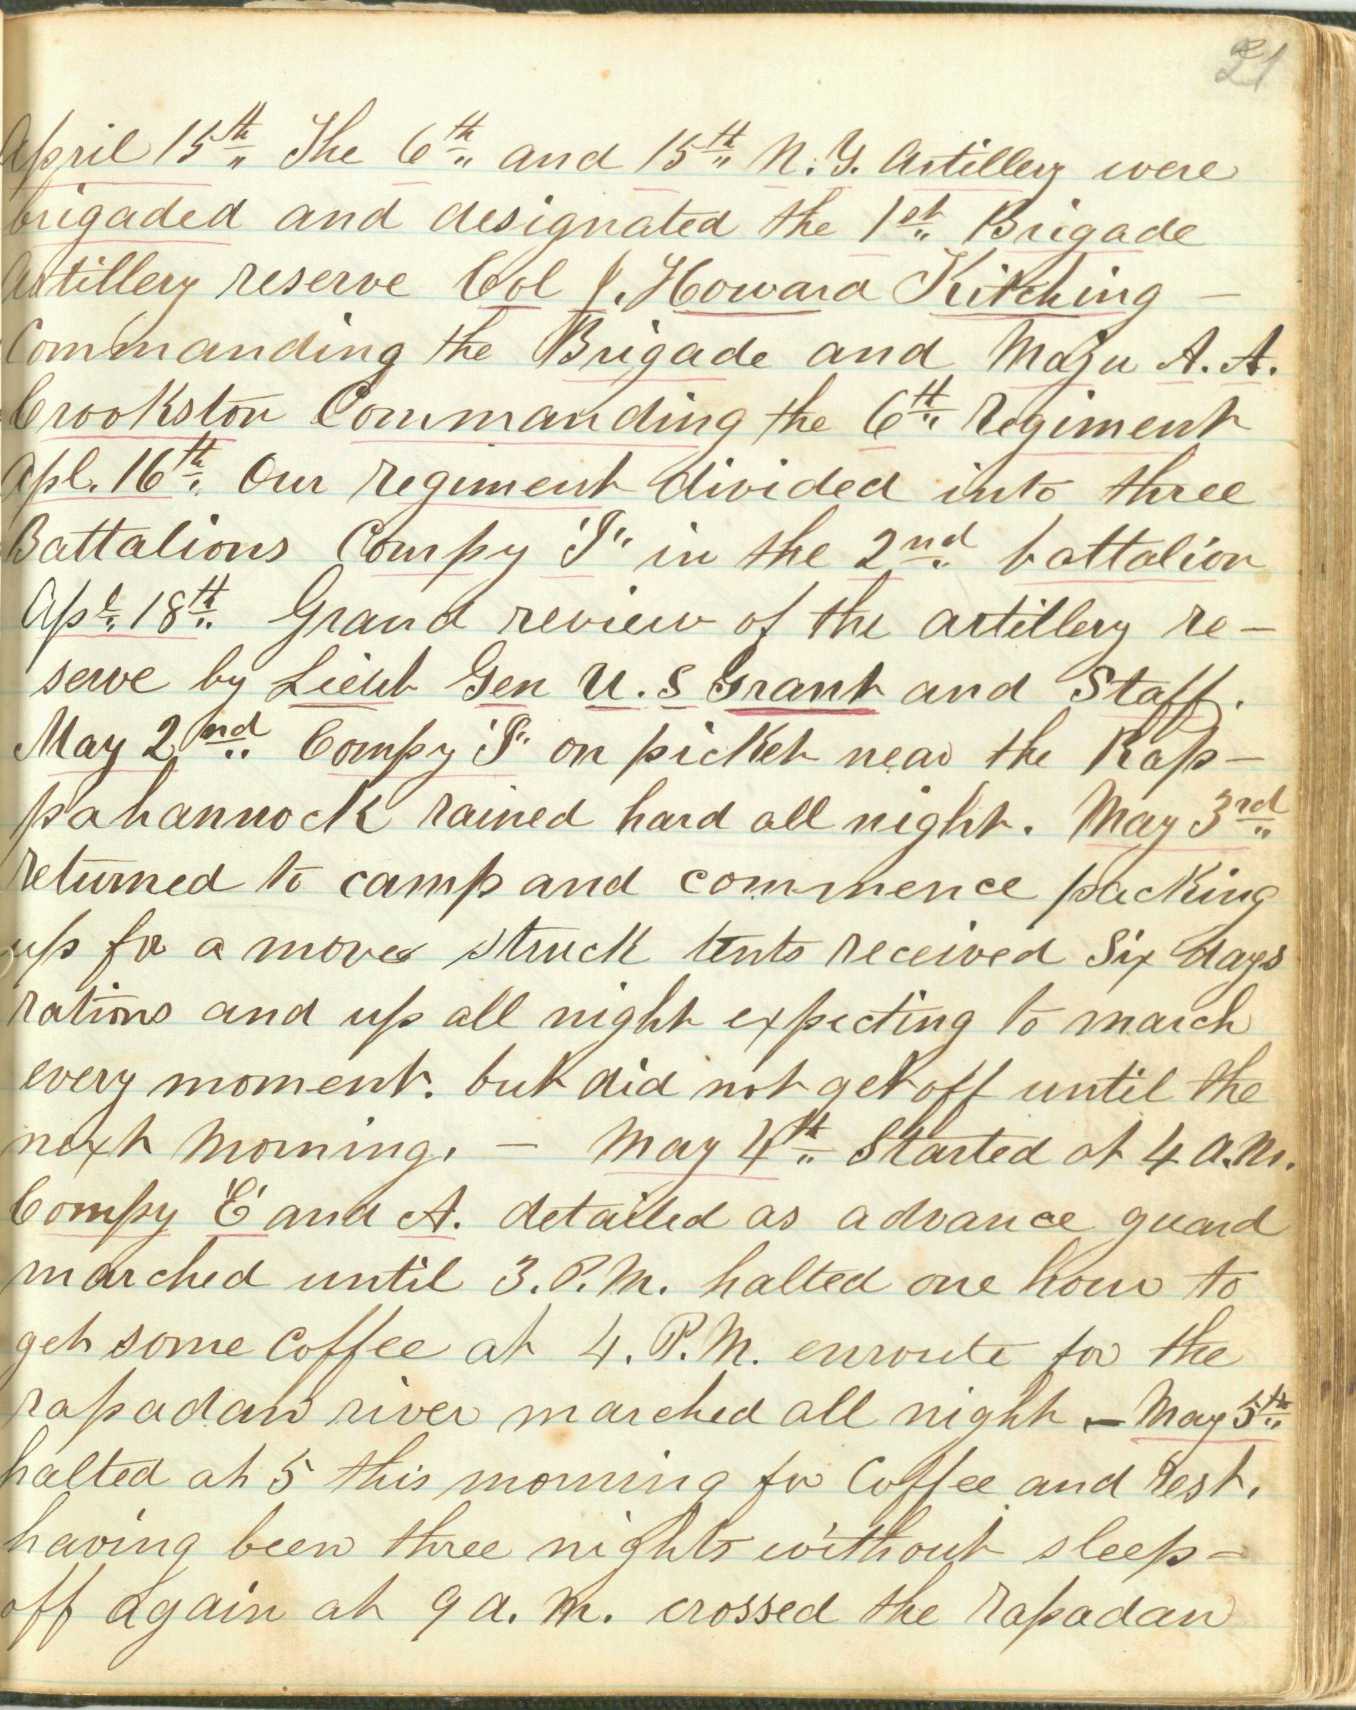 21
April 15th The 6th and 15th N. Y. Artillery were
brigaded and designated the 1st Brigade
Artillery reserve Col J. Howard Kitching –
Commanding the Brigade and Major A. A.
Crookston Commanding the 6th regiment
Apl. 16th Our regiment divided into three
Battalions Compy "I" in the 2nd battalion
Apl 18th Grand review of the artillery re-
serve by Lieut Gen U. S Grant and Staff.
May 2nd Compy "I" on picket near the Rap-
pahannock rained hard all night. May 3rd
returned to camp and commence packing
up for a move struck tents received Six days
rations and up all night expecting to march
every moment. but did not get off until the
next morning. – May 4th Started at 4 A.M.
Compy 'E' and A. detailed as advance guard
marched until 3. P.M. halted one hour to
get some Coffee at 4. P.M. enroute for the
rapadan river marched all night – May 5th
halted at 5 this morning for Coffee and rest.
having been three nights without sleep –
off again at 9 a.m. crossed the rapadan